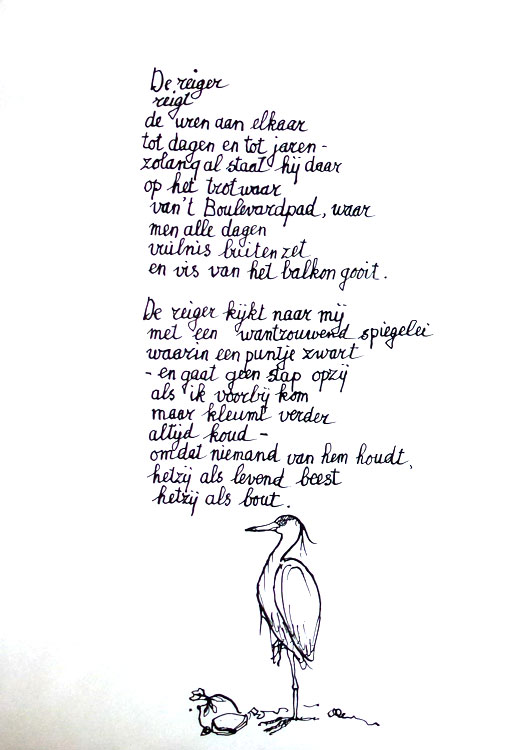 De reiger
reigt
de uren aan elkaar
tot dagen en tot jaren -
zolang al staat hij daar
op het trotwaar
van't Boulevardpad, waar
men alle dagen
vuilnis buiten zet
en vis van het balkon gooit.
De reiger kijkt naar mij
met een wantrouwend spiegelei
waarin een puntje zwart
- en gaat geen stap opzij
als ik voorbij kom
maar kleumt verder
altijd koud -
omdat niemand van hem houdt,
hetzij als levend beest
hetzij als bout.